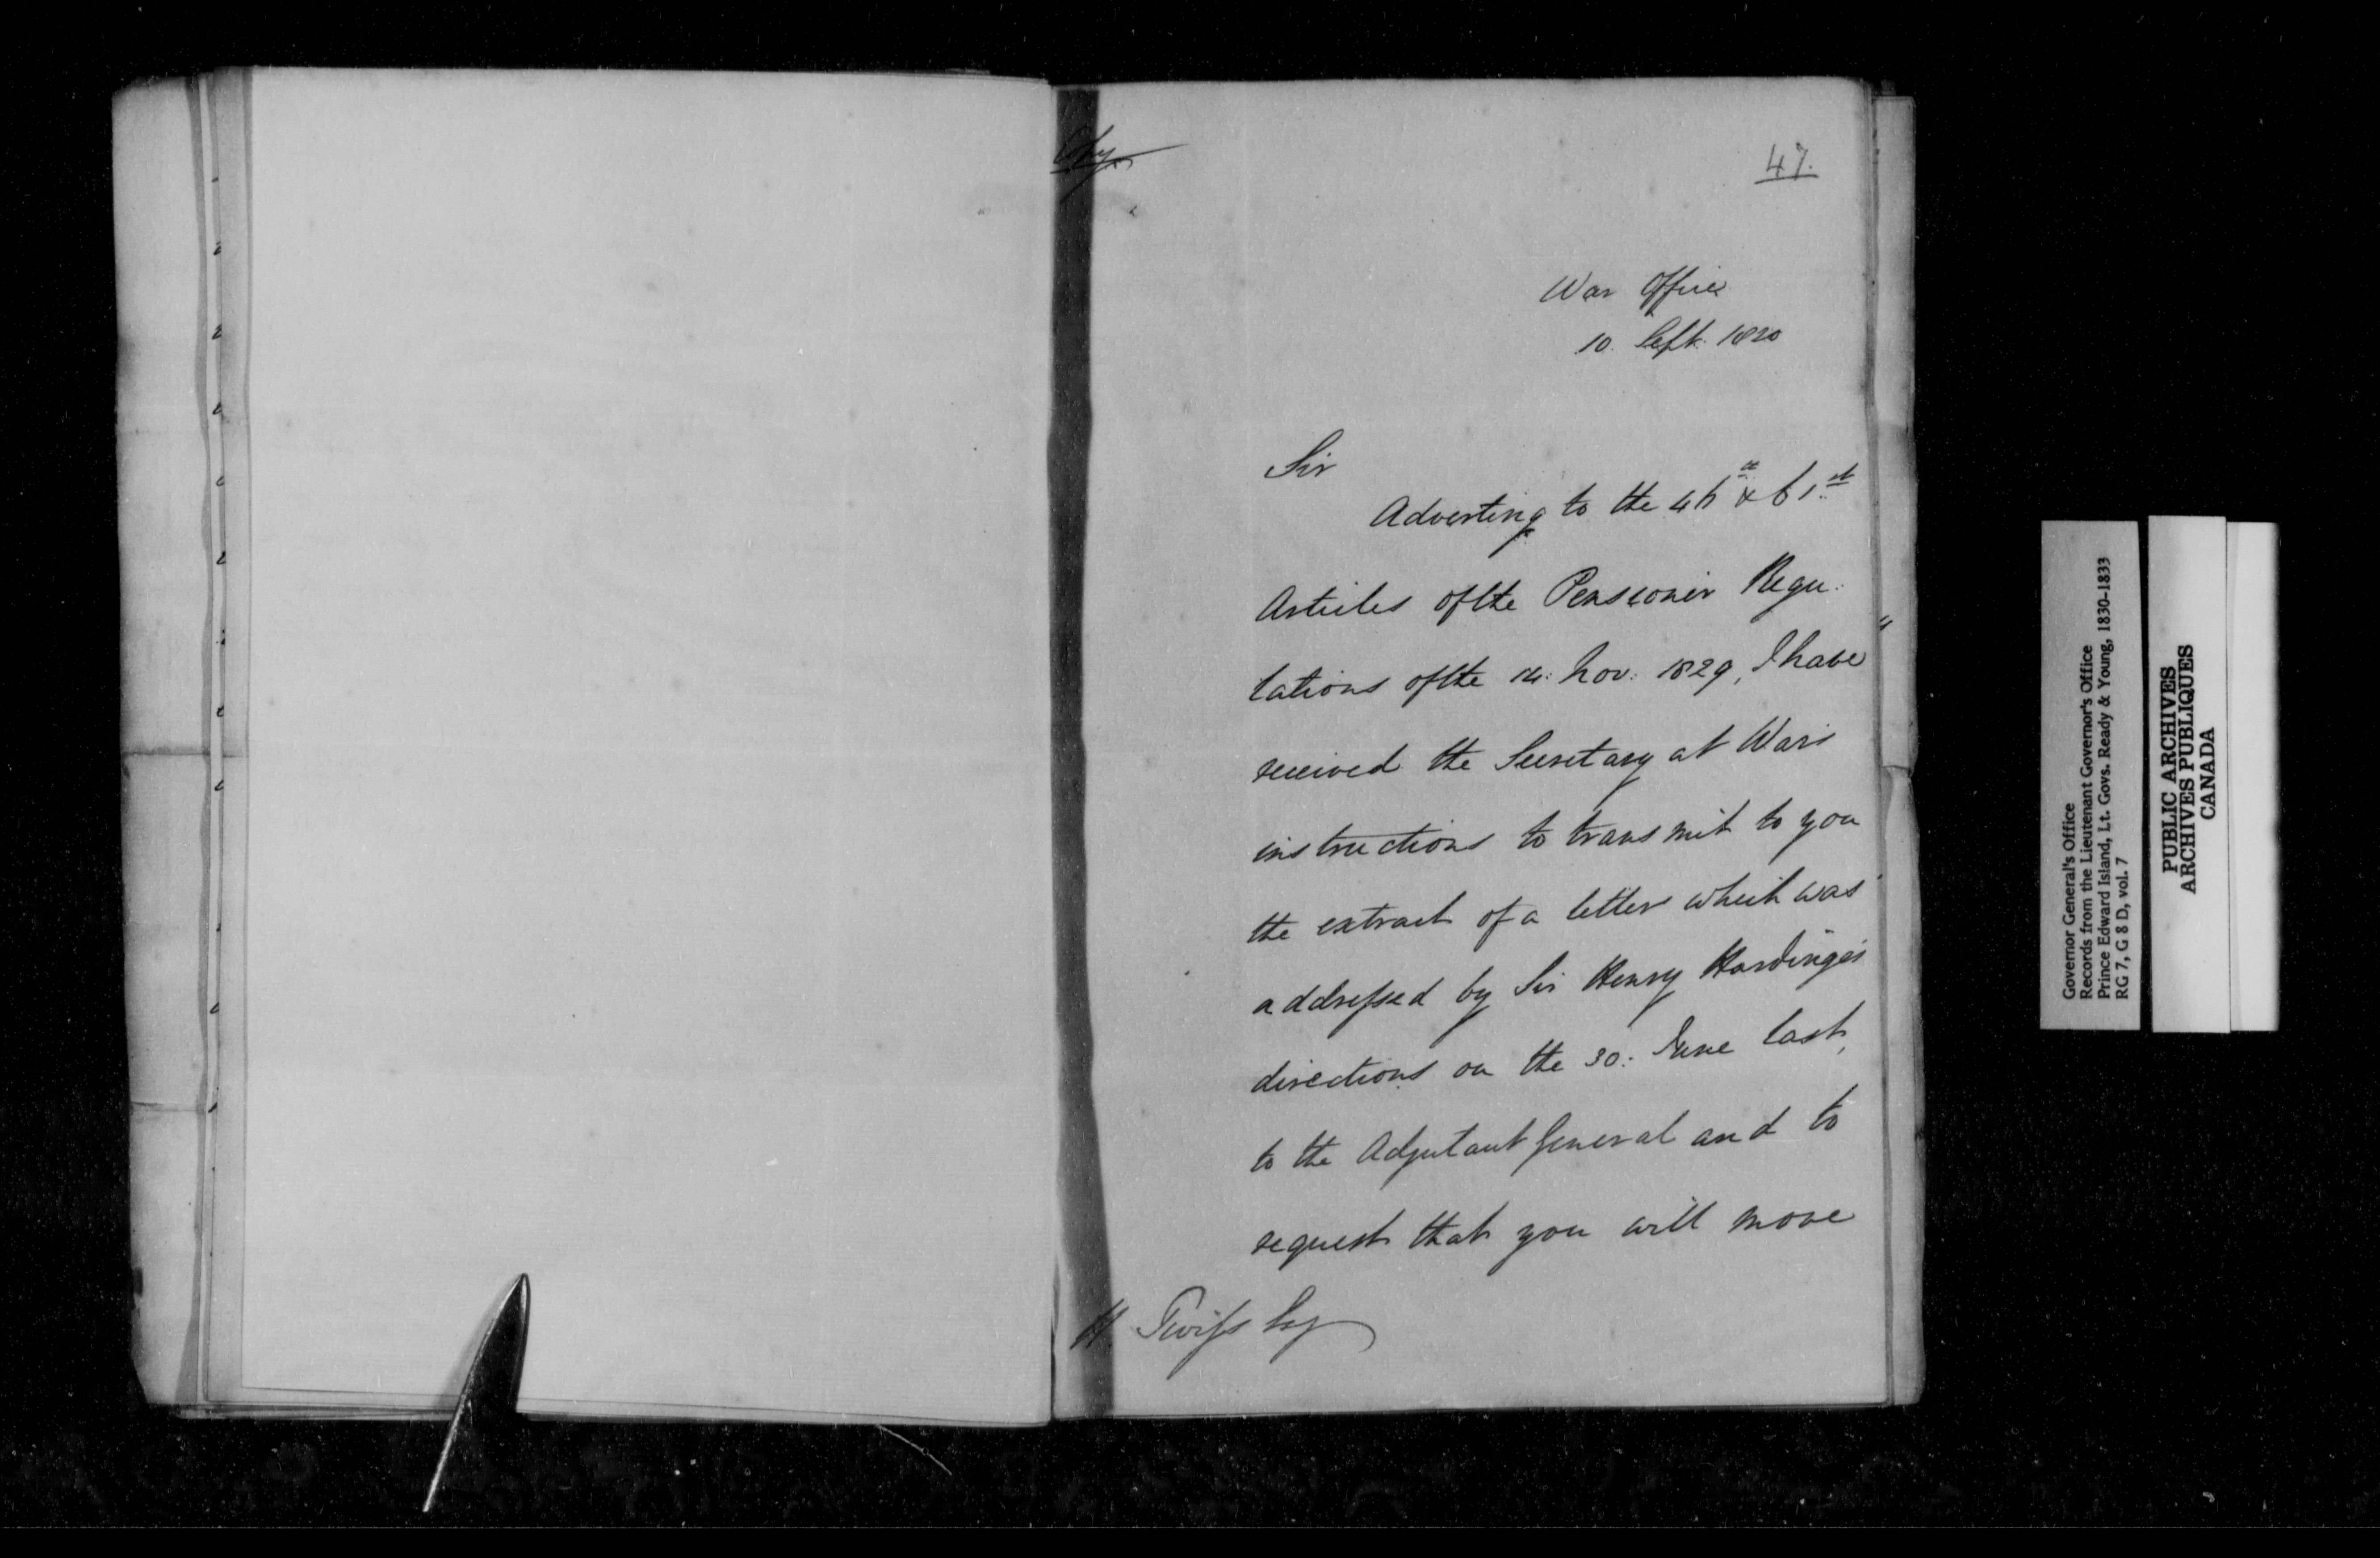 Copy
47.
War Office
10. Sept. 1830
Sir
Adverting to the & 61st
Articles of the Pensioner Regu:
lations of the 14: Nov: 1829, I have
received the Secretary at War's
instructions to transmit to you
the extract of a letter which was
addressed by Sir Henry Hardinge's
directions on the 30: June last,
to the Adjutant General and to
request that you will move
H. Twiss Esq
Governor General's Office
Records from the Lieutenant Governor's Office
Prince Edward Island, Lt. Govs. Ready & Young, 1830-1833
RG 7, G 8 D, vol. 7
PUBLIC ARCHIVES
ARCHIVES PUBLIQUES
CANADA